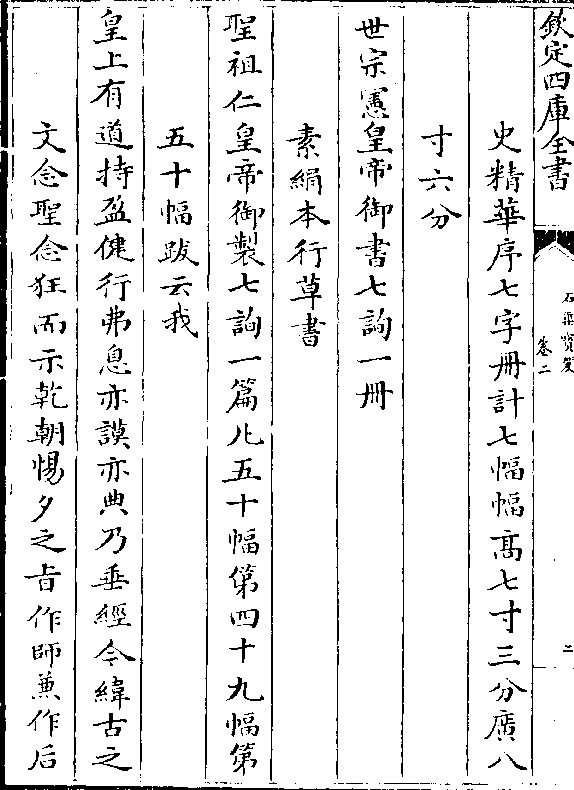 欽定四庫全書
石渠寳笈
卷二
二
史精華序七字冊計七幅幅髙七寸三分廣八
寸六分
世宗憲皇帝御書七詢一冊
素絹本行草書
聖祖仁皇帝御製七詢一篇凡五十幅第四十九幅第
五十幅跋云我
皇上有道持盈健行弗息亦謨亦典乃垂經今緯古之
文念聖念狂而示乾朝惕夕之㫖作師兼作后